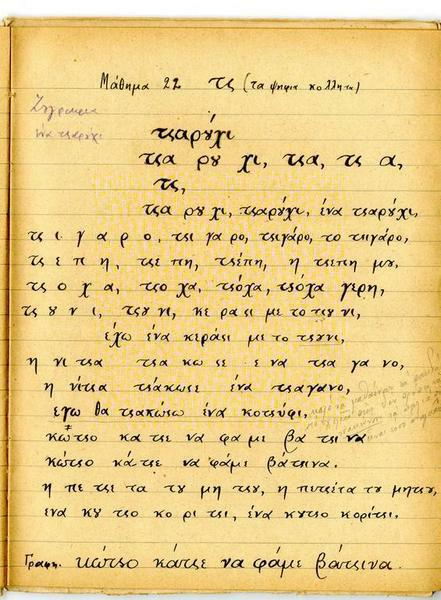 Μάθημα 22 τς (τα ψηφια κολλητα)
Ζυγραφια
ένα τςαρύχι
τςαρύχι
τςα ρυ χι, τςα, τς α,
τς,
τςα ρυ χι, τςαρύχι, ένα τςαρύχι,
τς ι γ α ρ ο, τςι γα ρο, τςιγάρο, το τςιγάρο,
τς ε π η, τςε πη, τςέπη, η τςεπη μυ,
τς ο χ α, τςο χα, τςόχα, τςόχα γερη,
τς υ ν ι, τςυ νι, κε ρα ςι με το τςυ νι,
έχω ένα κεράςι με το τςυνι,
η νι τςα τςα κω ςε ε να τςα γα νο,
η νίτςα τςάκωςε ένα τςαγανο,
εγω θα τςακώςω ένα κοτςύφι,
κώτςο κα τςε να φα με βα τςι να
κώτςο κάτςε να φάμε βάτςινα.
η πε τςε τα τυ μη τςυ, η πετςέτα τυ μητςυ,
ενα κυ τςο κο ρι τςι, ένα κυτςο κορίτςι,
Γραφη. κώτςο κάτςε να φάμε βάτςινα.